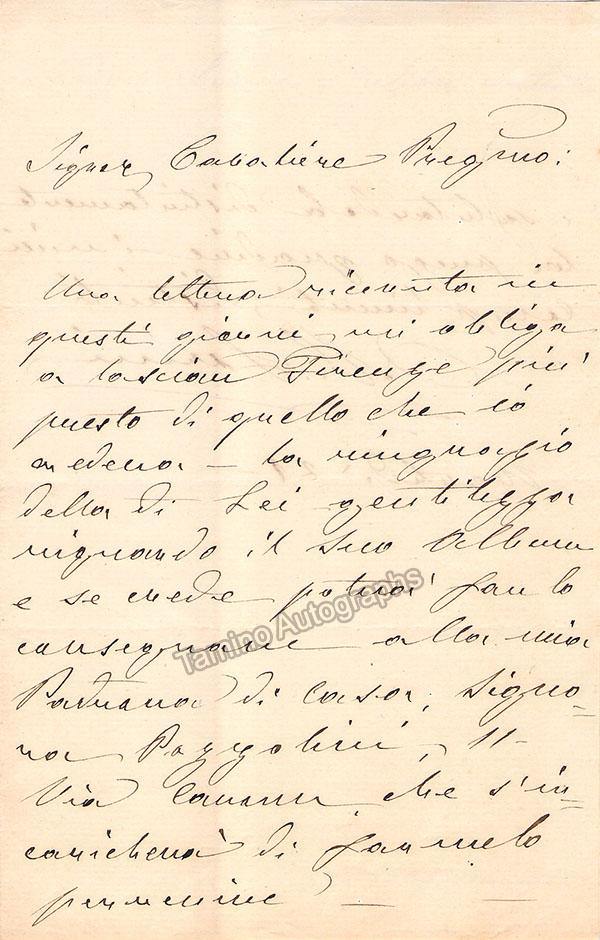 Signor Cavaliere Pregmo:
Una lettera ricevuta in
questi giorni mi obliga
a lasciar Firenze più
presto di quello che io
credeva – La ringrazio
della di Lei gentilezza
riguardo il Suo Album
e se crede potrà farlo
consegnare alla mia
Padrona di Casa, Signo=
ra Pozzolini, 11–
Via Cavour, che s'in=
caricherà di farmelo
pervenire — —
Tamino Autographs